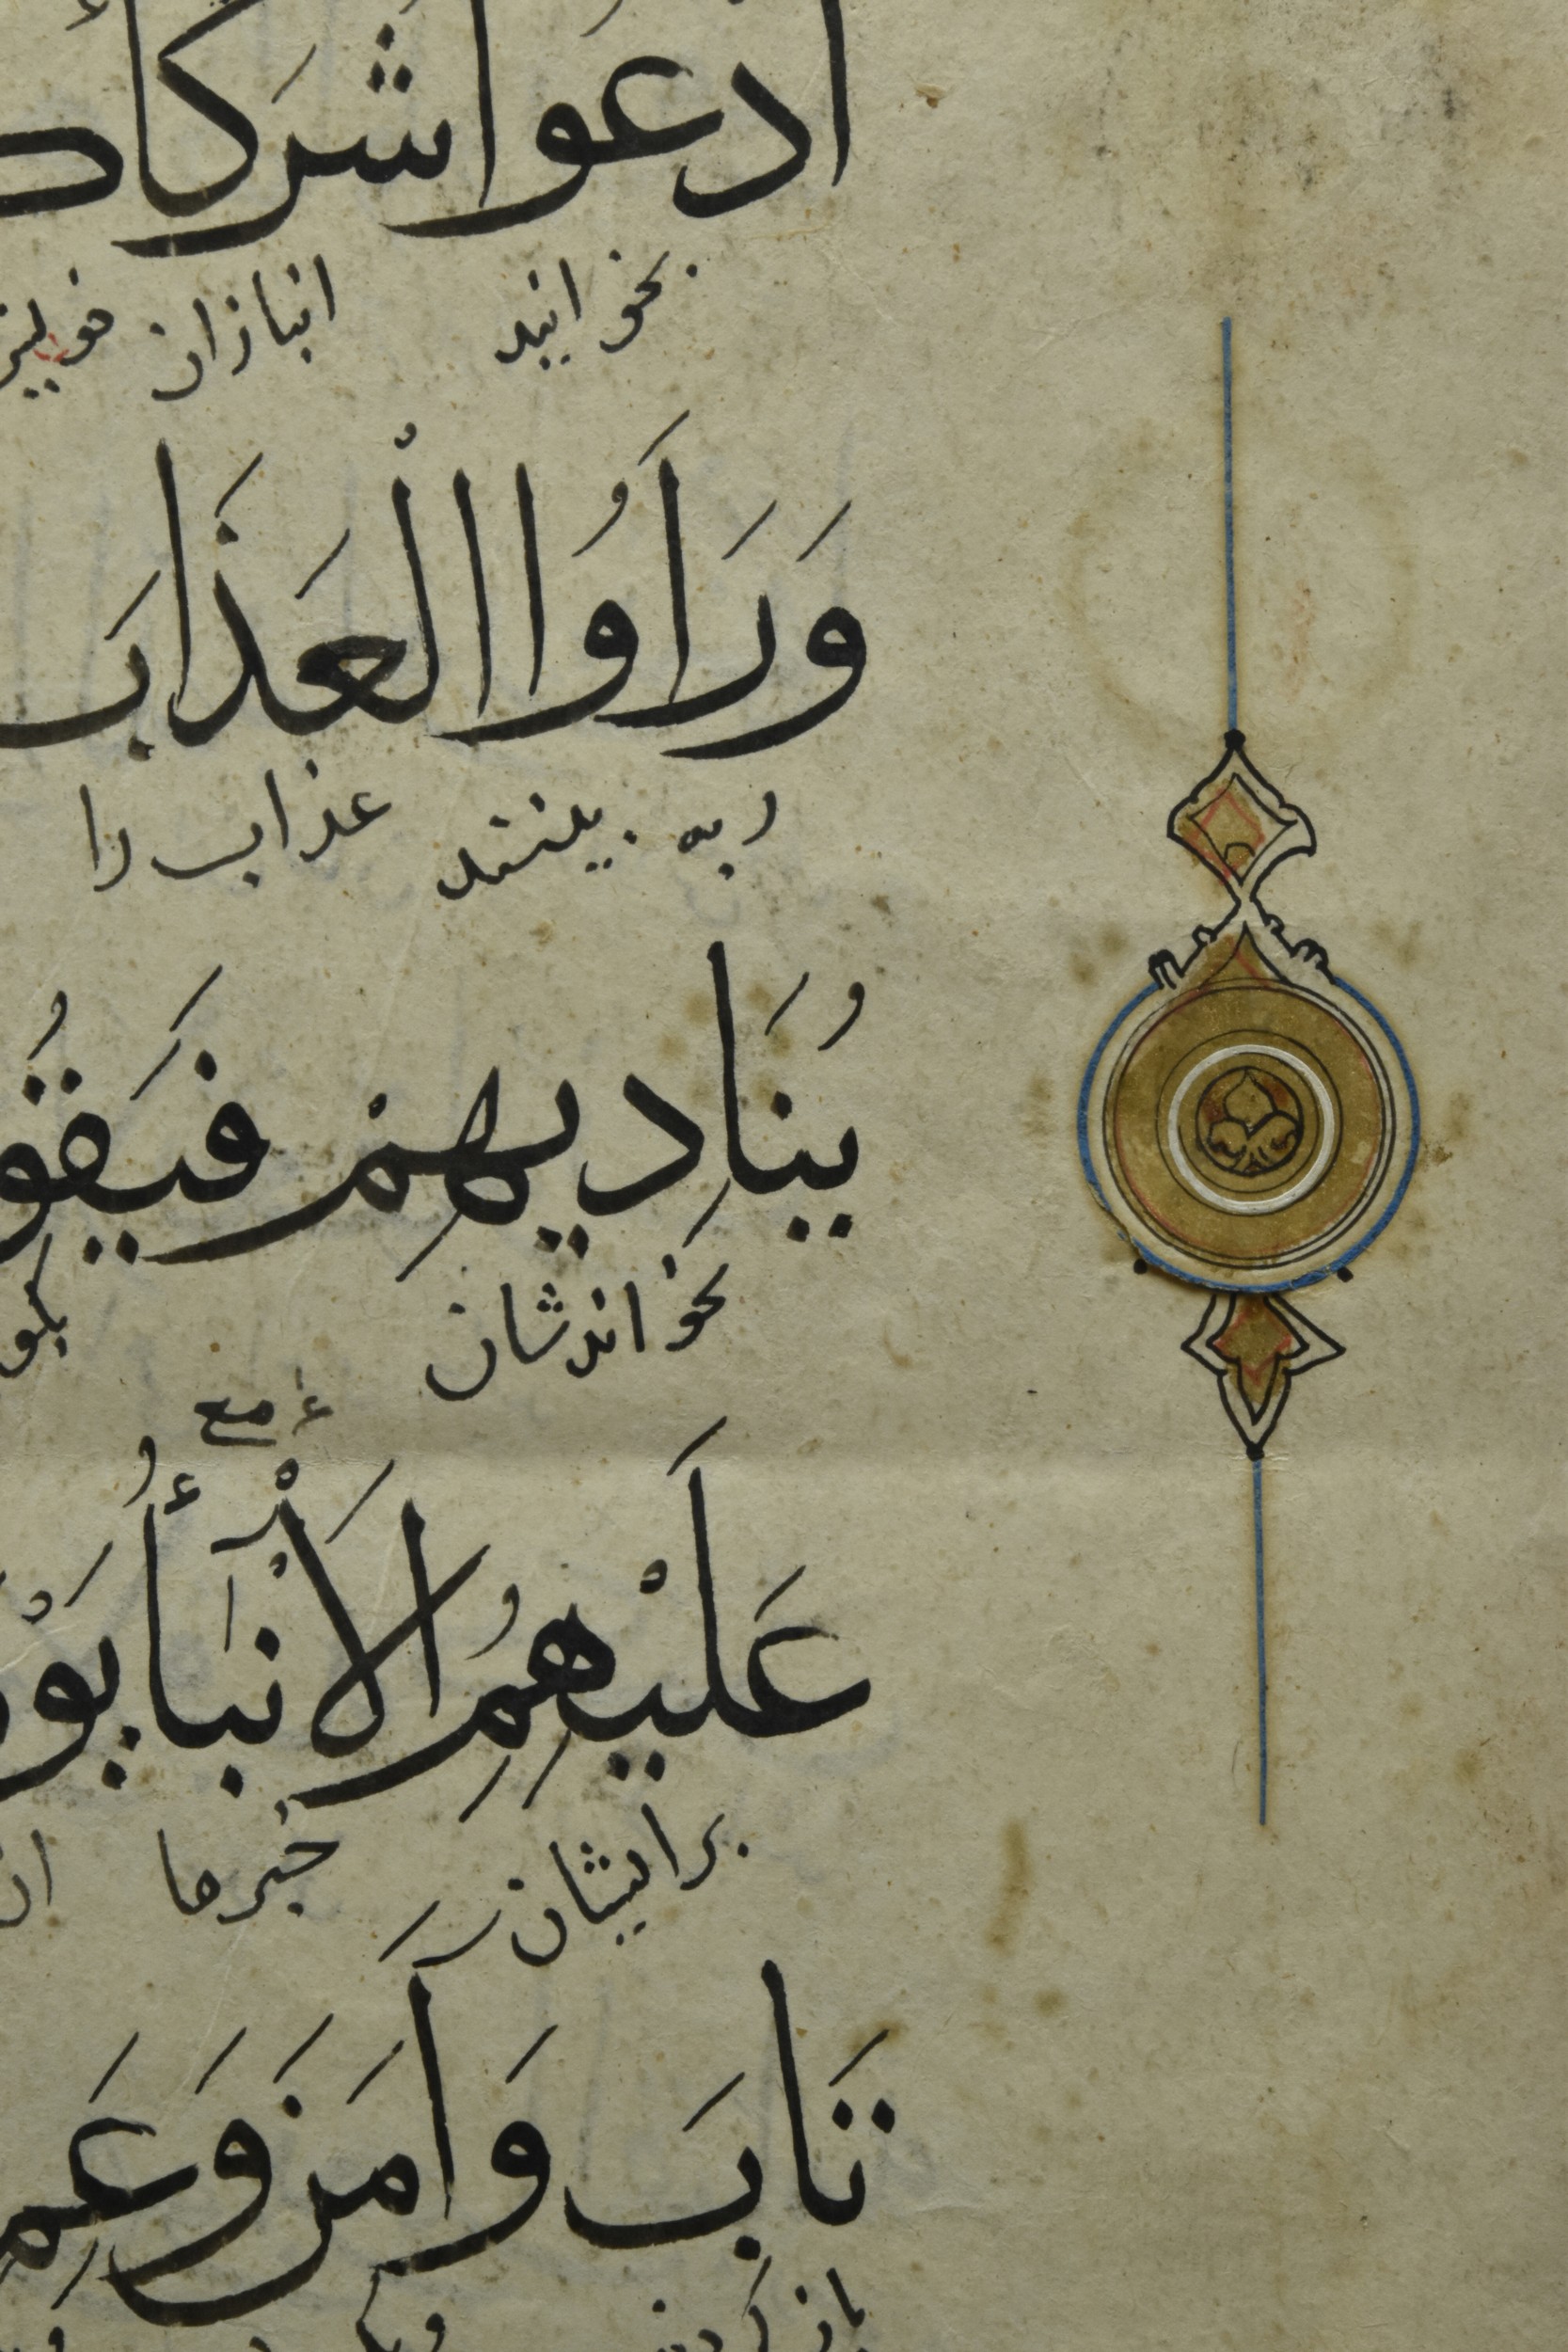 ادْعُوا شُرَكَاءَ
بخوانید انبازان خویش
وَرَأَوُا الْعَذَابَ
و به بینند عذاب را
يُنَادِيهِمْ فَيَقُو
بخواندشان بکو
عَلَيْهِمُ الْأَنْبَاءُ يَوْ
بر ایشان خبرها ان
تَابَ وَآمَنَ وَعَمِ